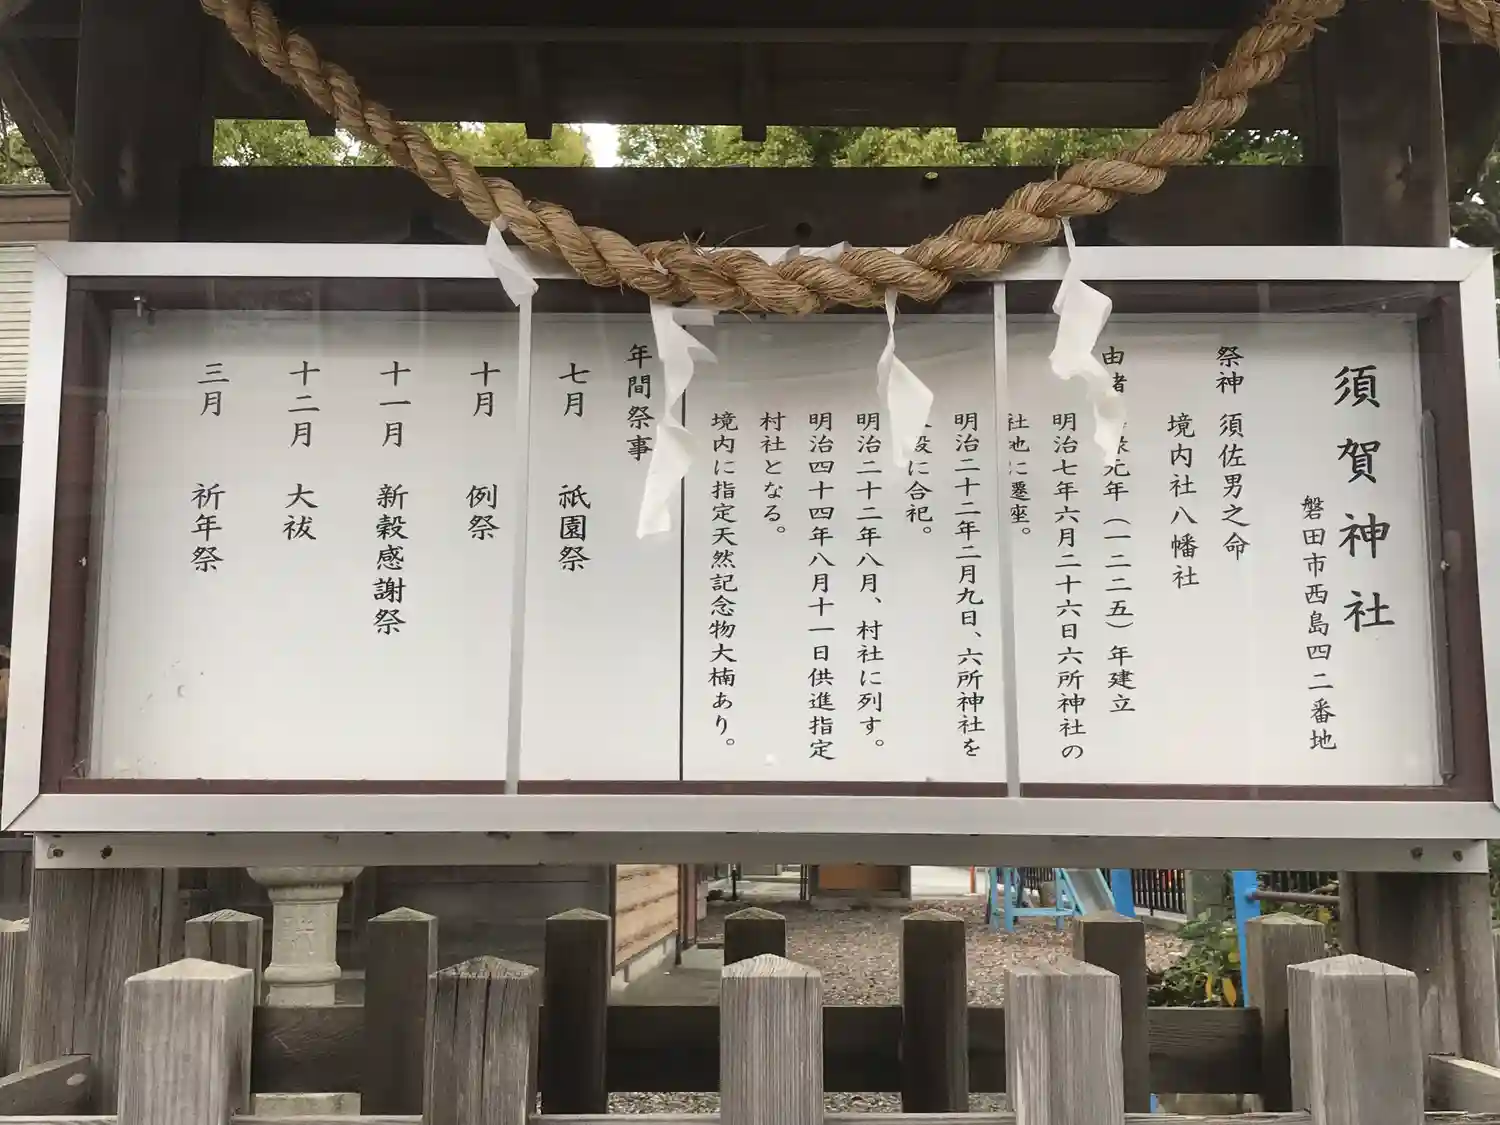 須賀神社
磐田市西島四二番地
祭神 須佐男之命
境内社八幡社
由緒 元年（一二二五）年建立
明治七年六月二十六日六所神社の
社地に遷座。
明治二十二年二月九日、六所神社を
に合祀。
明治二十二年八月、村社に列す。
明治四十四年八月十一日供進指定
村社となる。
境内に指定天然記念物大楠あり。
年間祭事
七月 祇園祭
十月 例祭
十一月 新穀感謝祭
十二月 大祓
三月 祈年祭